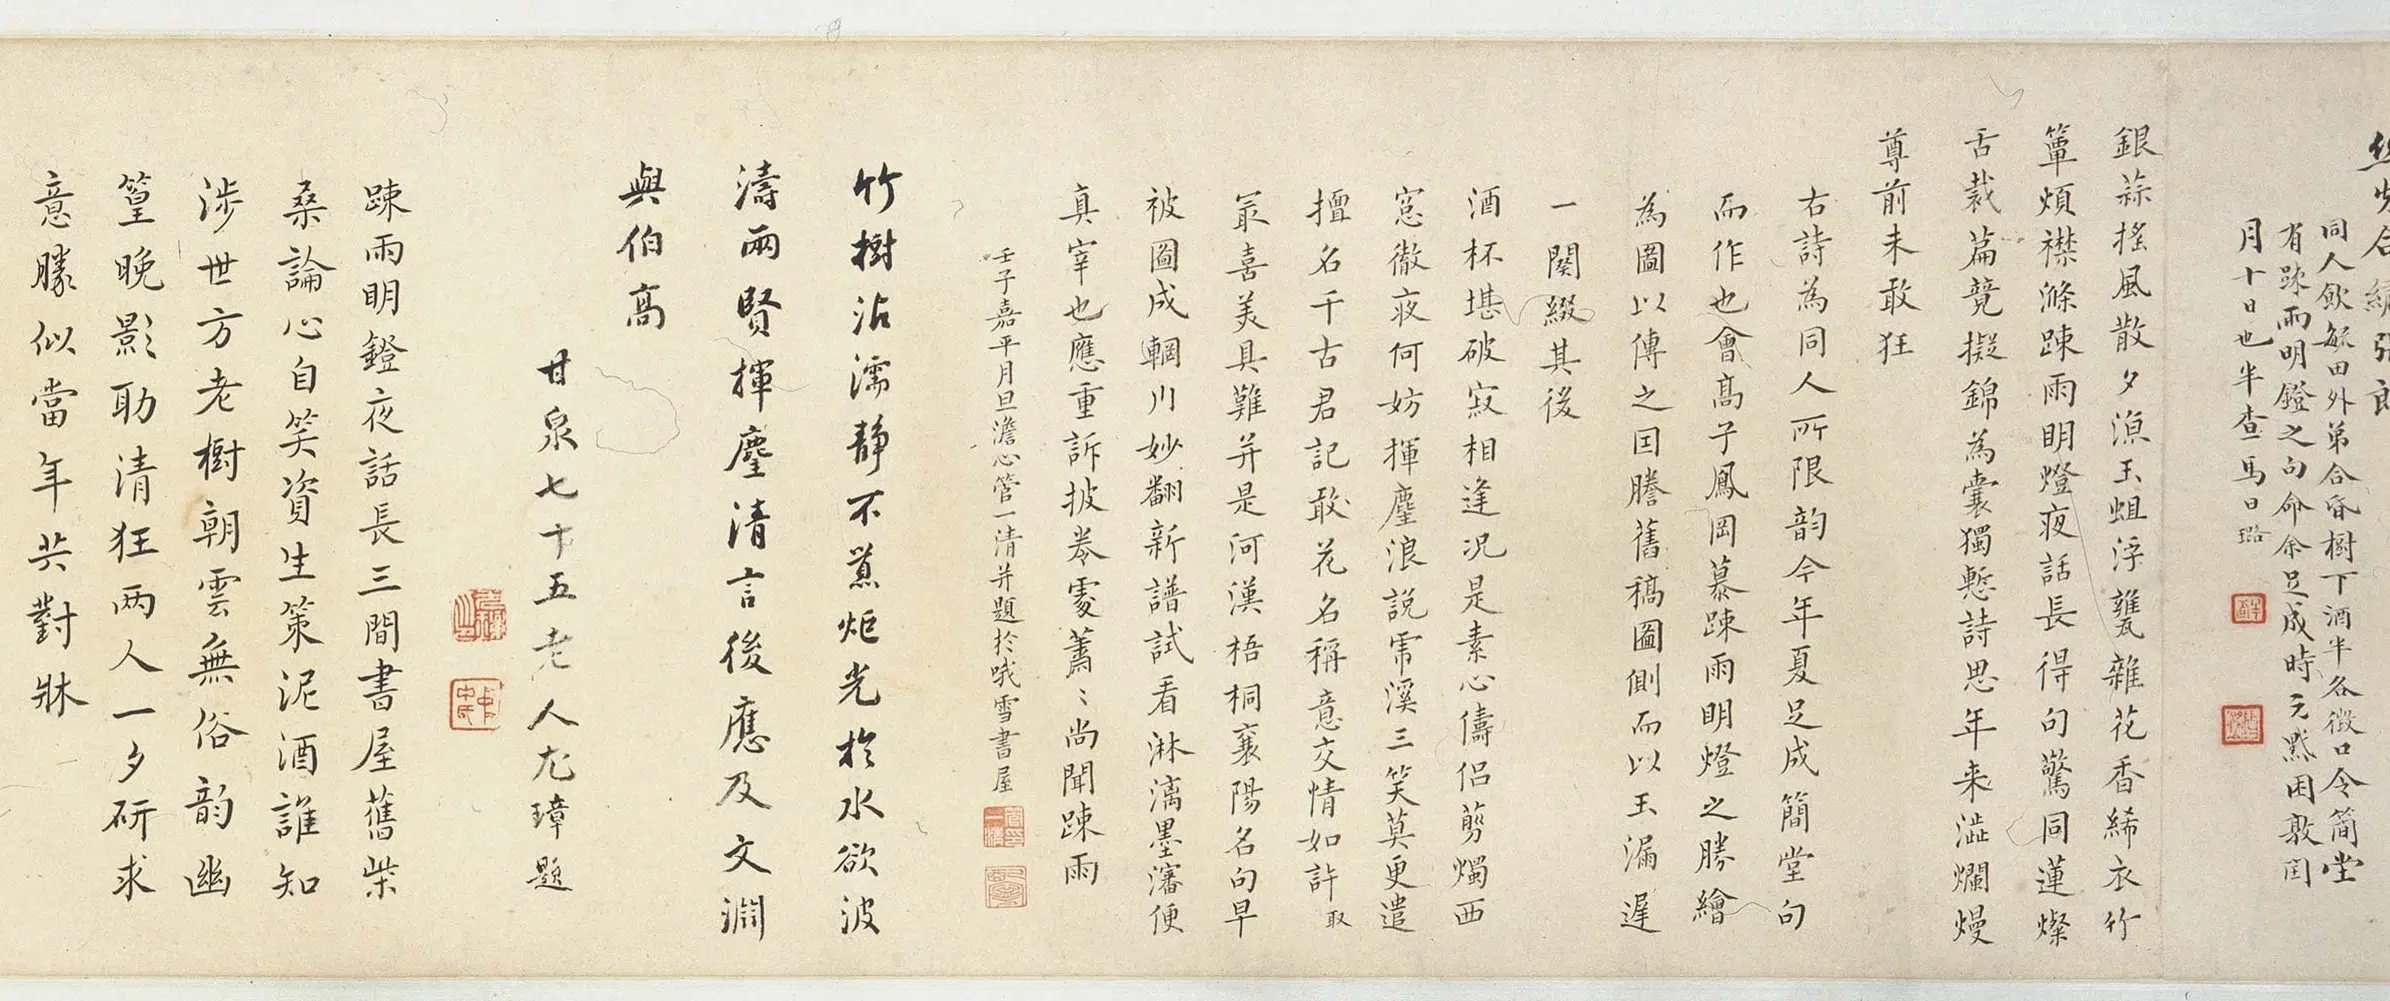 同人飲毓田外弟合昏樹下酒半各徵口令簡堂
有踈雨明鐙之句命余足成時元黓困敦閏
月十日也半查馬曰璐
銀蒜搖風散夕漁玉蛆浮甕雜花香絺衣竹
簟煩襟滌踈雨明燈夜話長得句驚同蓮燦
舌裁篇競擬錦為囊獨慙詩思年来澁爛熳
尊前未敢狂
右詩為同人所限韵今年夏足成簡堂句
而作也會高子鳳岡慕踈雨明燈之勝繪
為圖以傳之因謄舊稿圖側而以玉漏遲
一闋綴其後
酒杯堪破寂相逢況是素心儔侣剪燭西
窓徹夜何妨揮麈浪說虎溪三笑莫更遣
擅名千古君記敢花名稱意交情如許取
最喜美具難并是河漢梧桐襄陽名句早
被圖成輞川妙翻新譜試看淋漓墨瀋便
真宰也應重訴披卷處蕭〻尚聞踈雨
壬子嘉平月旦澹心管一清并題於哦雪書屋
竹樹沾濡靜不蒸炬光於水欲波
濤兩賢揮麈清言後應及文淵
與伯高
甘泉七十五老人尤璋題
踈雨明鐙夜話長三間書屋舊柴
桑論心自笑資生策泥酒誰知
涉世方老樹朝雲無俗韵幽
篁晚影助清狂两人一夕研求
意勝似當年共對牀